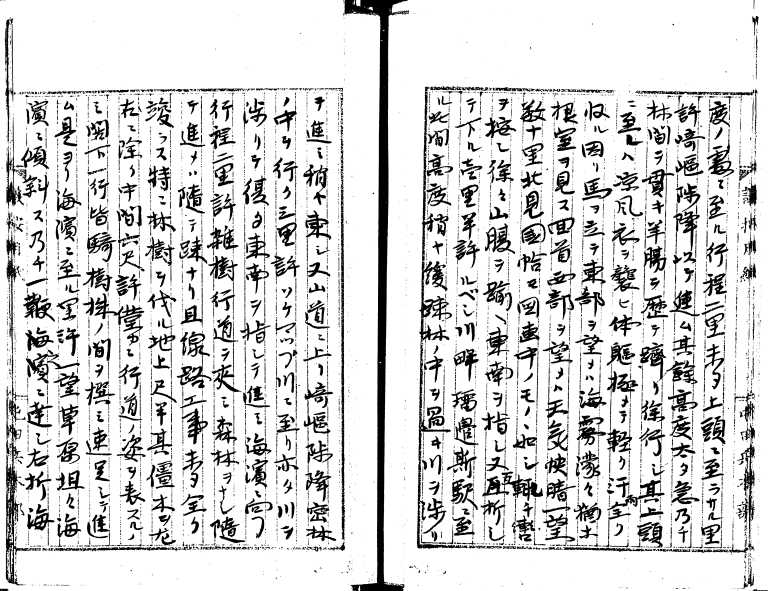 度ノ處ニ至ル行程二里未タ上頭ニ至ラサル里
許崎嶇陟降以テ進ム其餘高度太タ急乃チ
林間ヲ貫キ羊腸ヲ歴テ躋リ徐行シ其上頭
ニ至レハ涼風衣ヲ襲ヒ体軀極メテ軽ク汗全ク
収ル因リ馬ヲ立テ東部ヲ望メハ海霧濛々獨
根室ヲ見ス回首西部ヲ望メハ天気快晴一望
数十里北見國恰モ図画中ノモノヽ如シ轡
ヲ按シ徐々山腹ヲ踰ヘ東南ヲ指シ又直折シ
テ下ル壱里半許ルベシ川畔瑠邊斯駅ニ至
ル此間高度稍ヤ緩疎林ノ中ヲ過キ川ヲ渉リ
ヲ進ミ稍ヤ東シ又山道ニ上リ崎嶇陟降密林
ノ中ヲ行ク三里許ソケマップ川ニ至リ亦タ川ヲ
渉リテ復タ東南ヲ指シテ進ミ海濱ニ向フ
行程二里許雑樹行道ヲ夾ミ森林ヲナシ隨
テ進メハ隨テ疎ナリ且線路工事未タ全ク
竣ラス特ニ林樹ヲ伐ル地上尺半其僵木ヲ
左ニ除ク中間六尺許僅カニ行道ノ姿ヲ表スルノ
ミ閣下一行皆騎樹株ノ間ヲ撰ミ連足シテ進
ム是ヨリ海濱ニ至ル里許一望草原坦々海
濱ニ傾斜ス乃チ一鞭海濱ニ達シ右折海